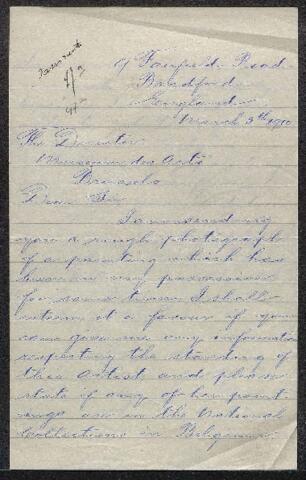 9 Fairfield Road
Bradford
England
March 3th 1910
The Director
Museum des Arts
Brussels
Dear Sir
I am sending
you a rough photograph
of a painting which has
been in my possession
for some time. I shall
esteem it a favour if you
can give me any information
respecting the standing of
this Artist and please
state if any of her paint-
ings are in the National
Collections in Belgium